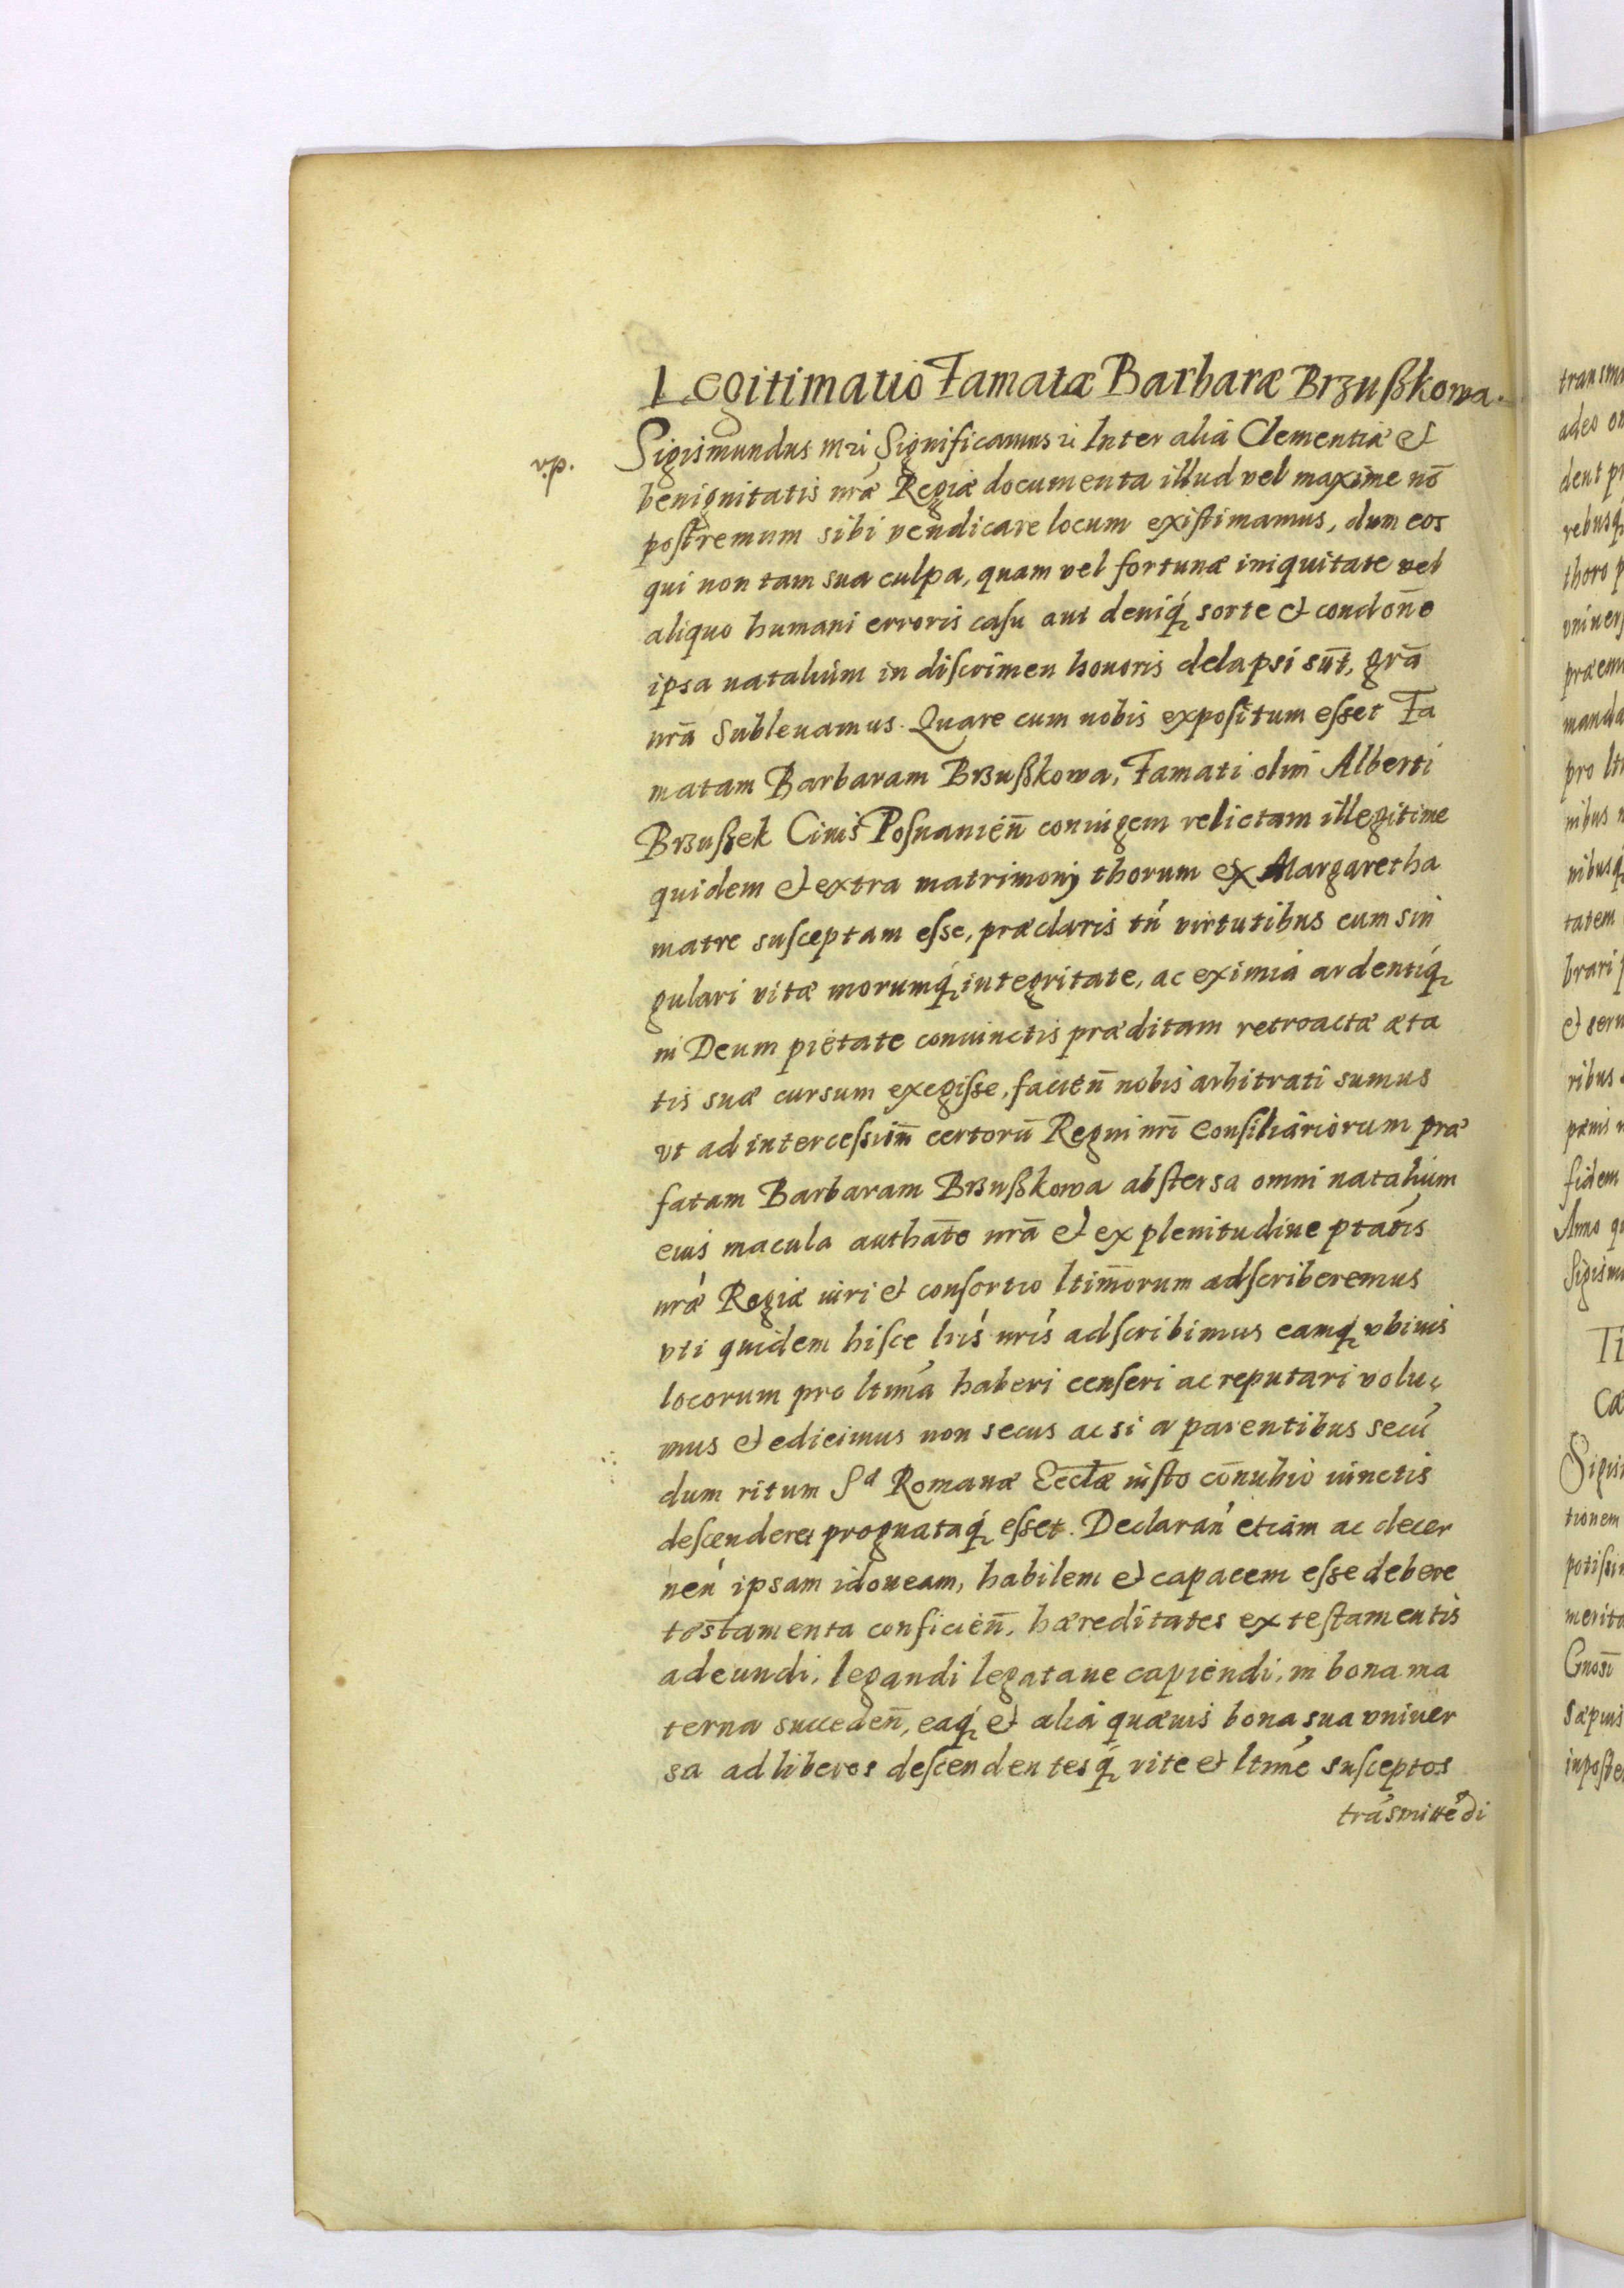 Legitimatio Famatæ Barbaræ Brzußkowa.
v.p.
Sigismundus 3ti Significamus &c Inter alia Clementiæ et
benignitatis nrǽ Regiæ documenta illud vel maxime nō
postremum sibi vendicare locum existimamus, dum eos
qui non tam sua culpa, quam vel fortunæ iniquitate vel
aliquo humani erroris casu aut deniq́ sorte et condōne
ipsa natalium in discrimen honoris delapsi sūt, grā
nrā Subleuamus. Quare cum nobis expositum esset Fa
matam Barbaram Brzußkowa, Famati olim Alberti
Brzußek Ciuis Posnanien̄ coniugem relictam illegitime
quidem et extra matrimonij thorum ex Margaretha
matre susceptam esse, præclaris tń virtutibus cum sin
gulari vitæ morumq́ integritate, ac eximia ardentiq́
in Deum pietate coniunctis præditam retroactæ æta
tis suæ cursum exegisse, facien̄ nobis arbitrati sumus
vt ad intercessiōn certorū Regni nrī Consiliariorum præ
fatam Barbaram Brzußkowa abstersa omni natalium
eius macula authāte nrā et ex plenitudine ptātis
nrǽ Regiæ iuri et consortio ltim̄orum adscriberemus
vti quidem hisce lrís nrís adscribimus eamq́ vbiuis
locorum pro ltimá haberi censeri ac reputari volu-
mus et edicimus non secus ac si a parentibus secú
dum ritum Sæ Romanæ Ecclǣ iusto cōnubio iunctis
descenderet prognataq́ esset. Declaran̄ etiam ac decer
neń ipsam idoneam, habilem et capacem esse debere
testamenta conficien̄, hæreditates ex testamentis
adeundi, legandi legataue capiendi, in bona ma
terna succeden̄, eaq́ et alia quæuis bona sua vniuer
sa ad liberos descendentesq́ rite et ltimé susceptos
trásmittédi
transmi
adeo o
dent p
rebusq́
thoro p
vniuers
præem
manda
pro lti
nibus n
nibusq́
tatem
brari p
et seru
ribus
pænis n
fidem
Anno q
Sigism
Ti
Cæ
Sigis
tionem
potissi
merita
Gnosī
Sæpius
inposte